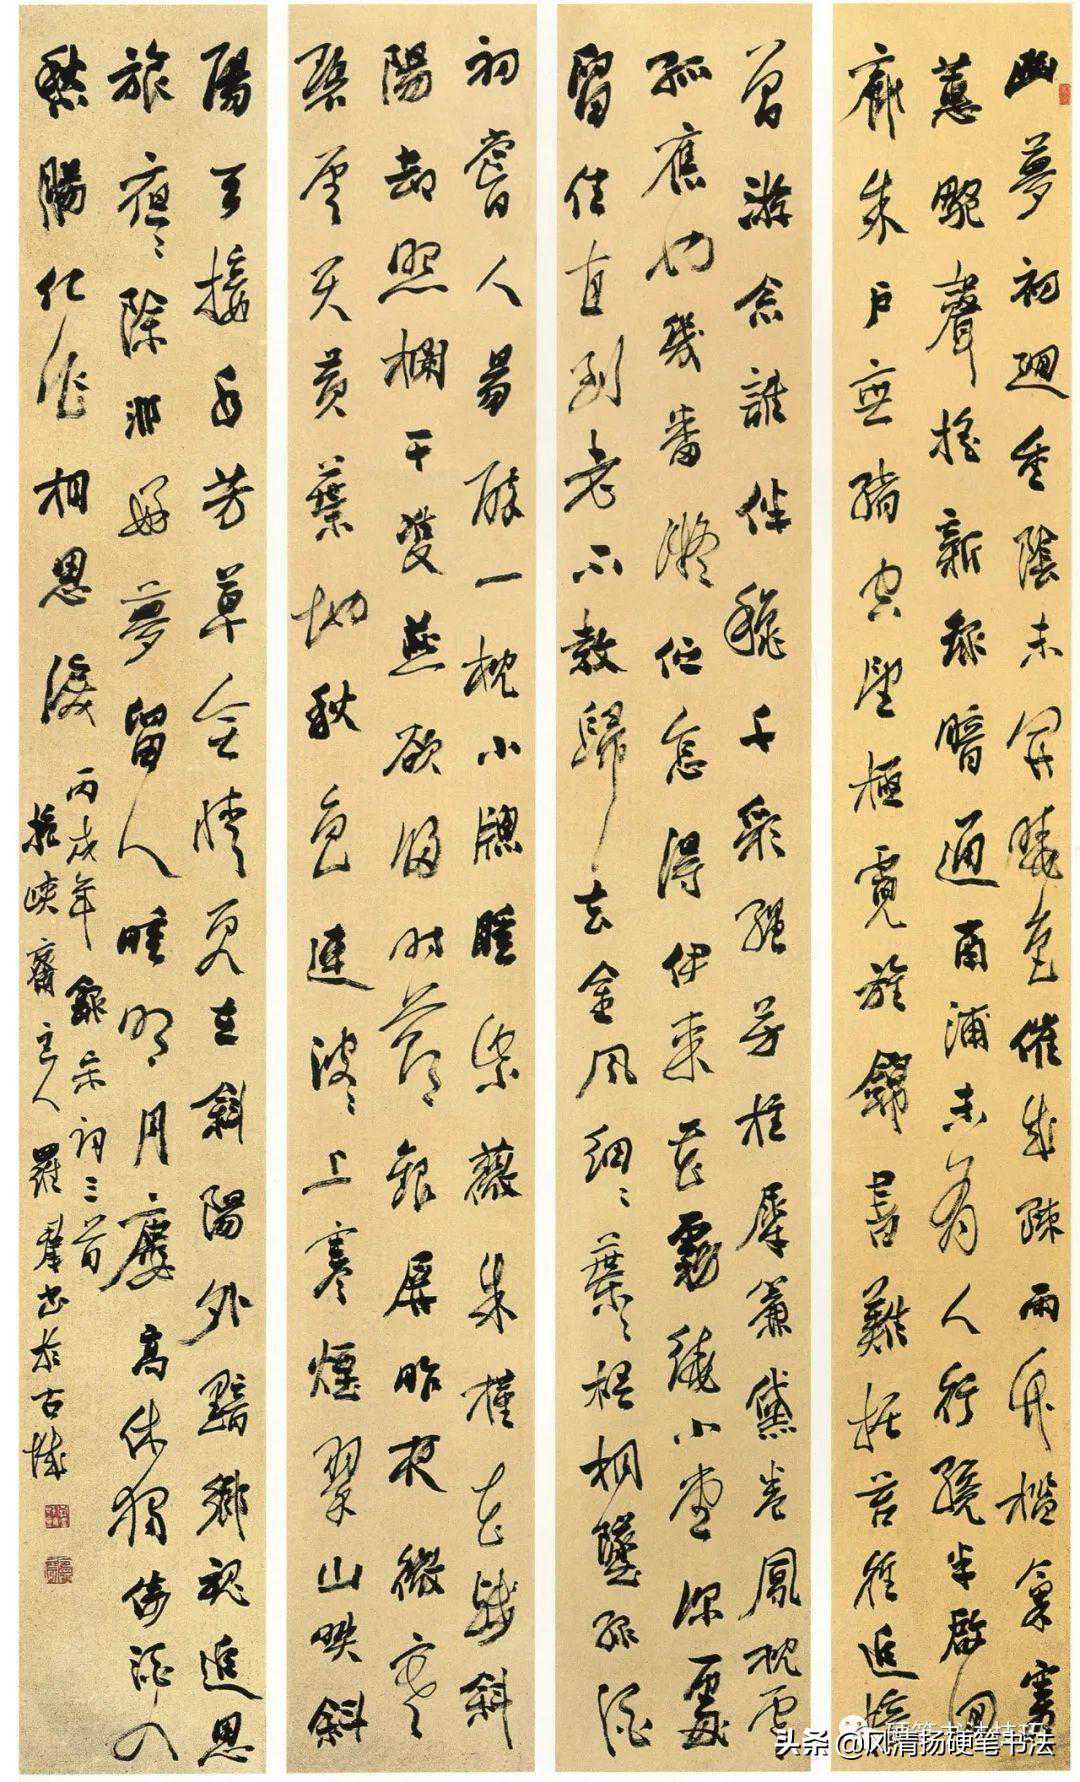 幽夢初迴重陰未開曉色催成疎雨竹檻氣寒
蕙畹聲搖新綠暗通南浦未有人行纔半啟回
廊朱戶無端空望極霓旌錦書難據苔徑追憶
曾游念誰伴鞦千彩繩芳柱犀簾黛卷鳳枕雲
孤應也幾番凝佇怎得伊來花霧繞小堂深處
留住直到老不教歸去金風細〻葉〻梧桐墜綠酒
初嘗人易醉一枕小牕睡紫薇朱槿花殘斜
陽却照欄干雙燕欲歸時節銀屏昨夜微寒
碧雲天黃葉地秋色連波〻上寒煙翠山映斜
陽天接水芳草無情更在斜陽外黯鄉魂追思
旅夜〻除非好夢留人睡明月廔高休獨倚酒入
愁腸化作相思淚
丙戌年錄宋詞三首
峽齋主人羅書於古城
头条@风清扬硬笔书法